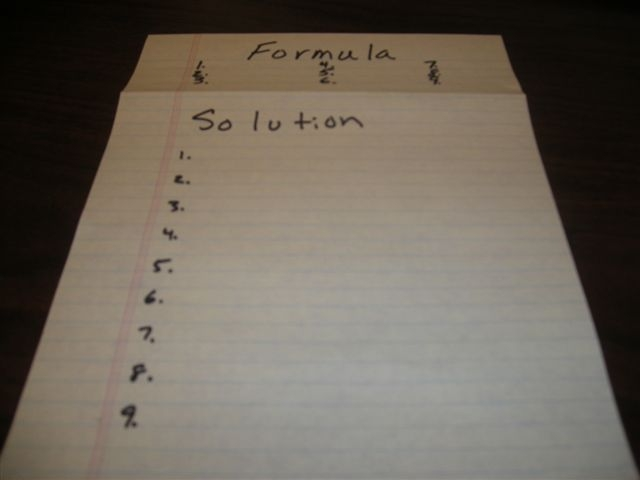 Formula
1. 4. 7.
2. 5. 8.
3. 6. 9.
Solution
1.
2.
3.
4.
5.
6.
7.
8.
9.